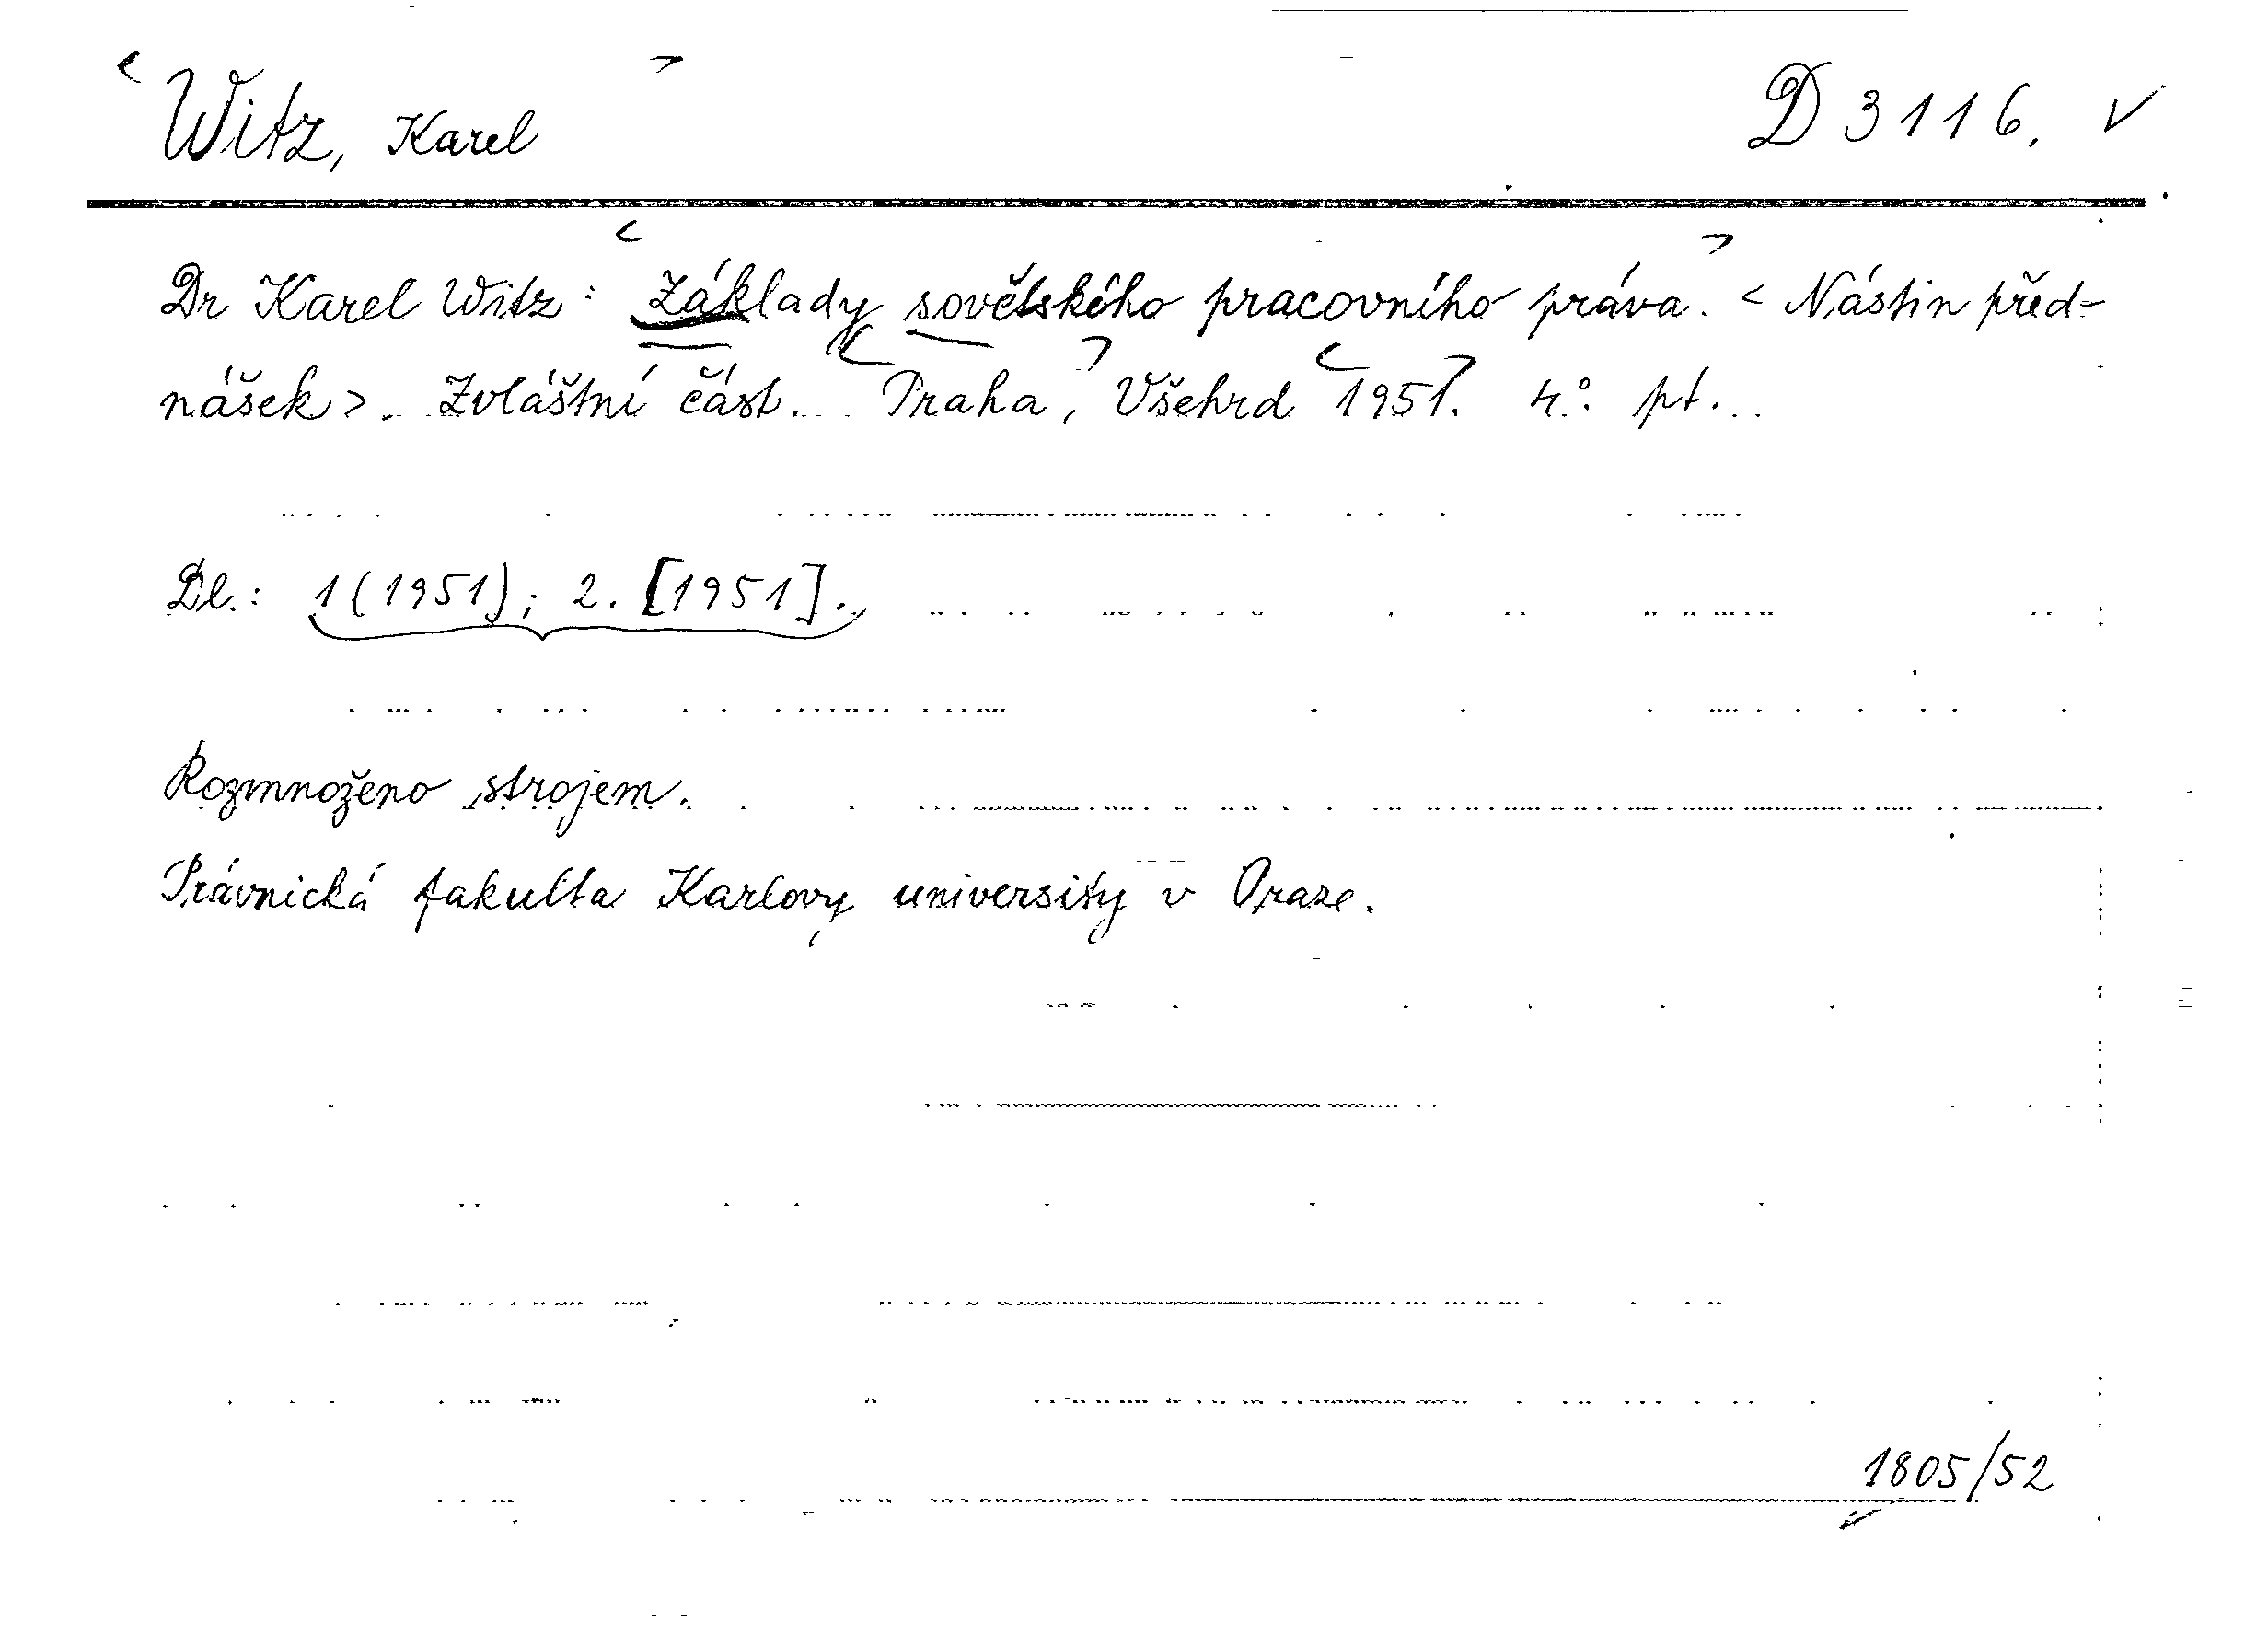 Witz, Karel D 3116. ✓
Dr Karel Witz: Základy sovětského pracovního práva. < Nástin před-
nášek>. Zvláštní část. Praha, Všehrd 1951. 4°. pt.
Dl.: 1 (1951); 2. [1951].
Rozmnoženo strojem.
Právnická fakulta Karlovy university v Praze.
1805/52